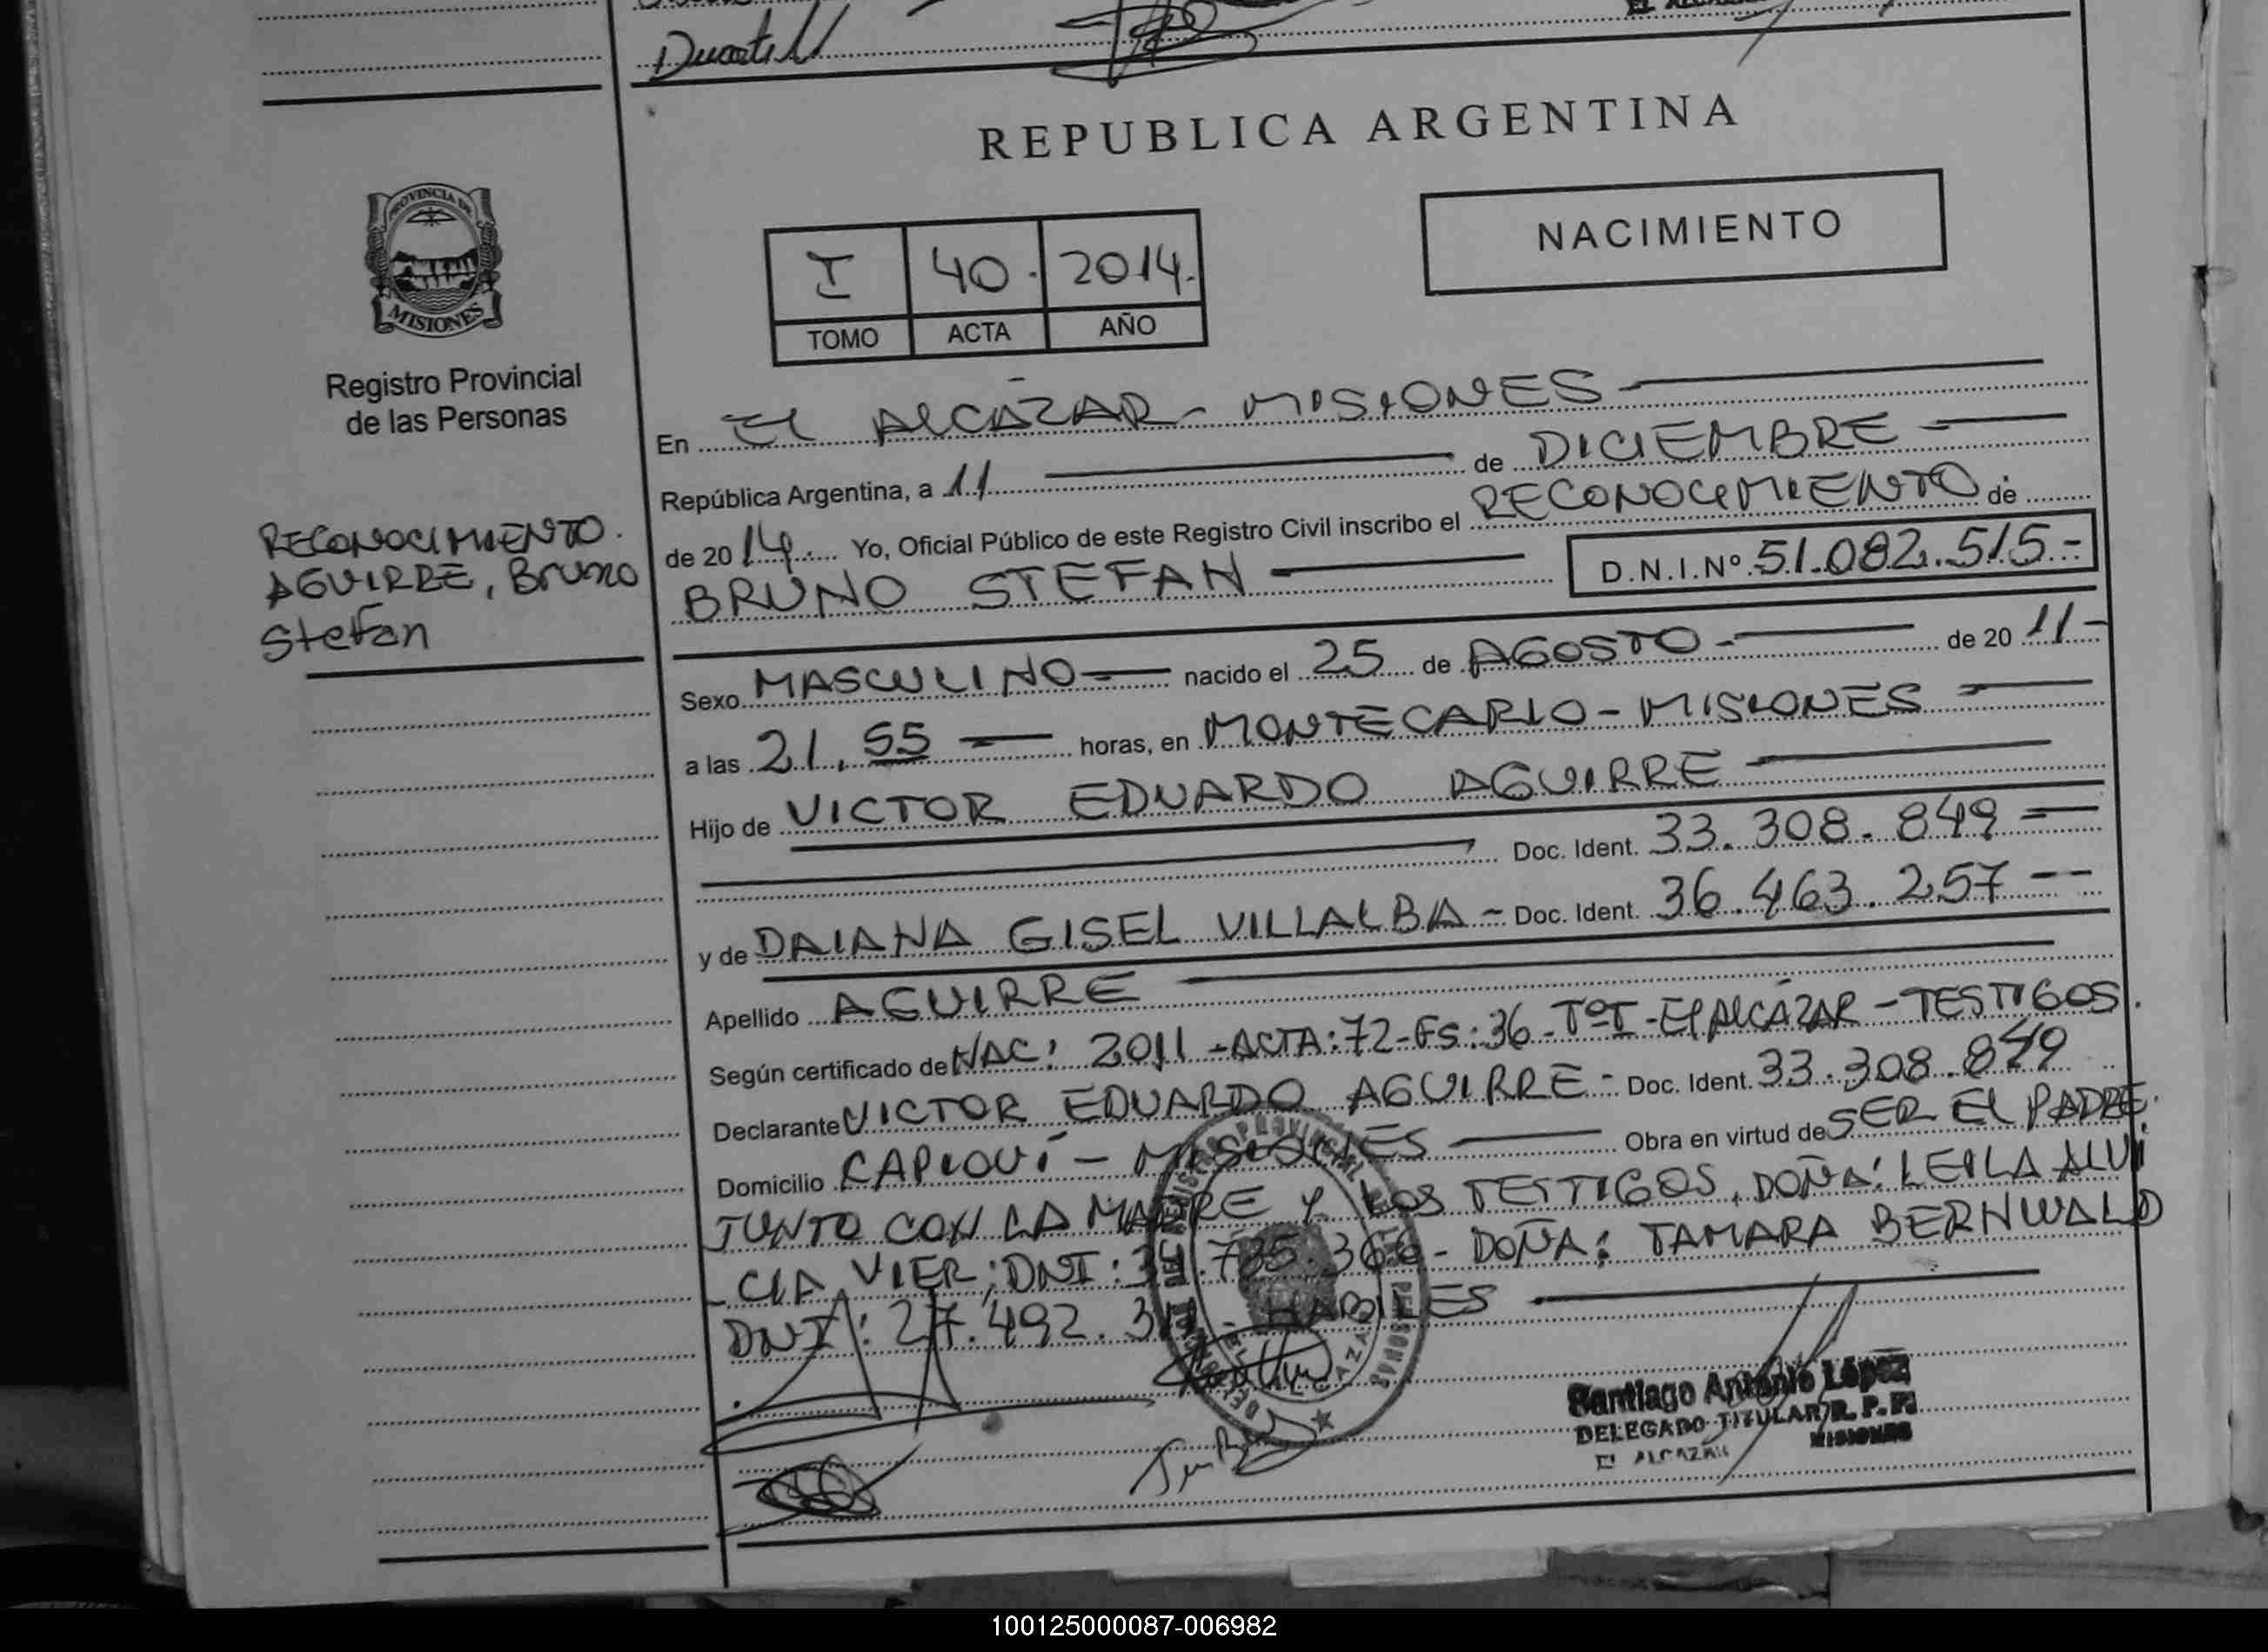 REPUBLICA ARGENTINA
PROVINCIA DE
MISIONES
Registro Provincial
de las Personas
NACIMIENTO
I 40. 2014.
TOMO ACTA AÑO
RECONOCIMIENTO.
AGUIRRE, Bruno
Stefan
En El AlCÁZAR - MISIONES
República Argentina, a 11 de DICIEMBRE
de 2014. Yo, Oficial Público de este Registro Civil inscribo el RECONOCIMIENTO de
BRUNO STEFAN D.N.I.Nº 51.082.515.-
Sexo MASCULINO nacido el 25 de AGOSTO - de 20 11 -
a las 21,55 horas, en MONTECARLO - MISIONES
Hijo de VICTOR EDUARDO AGUIRRE
Doc. Ident. 33.308.849
y de DAIANA GISEL VILLALBA - Doc. Ident. 36.463.257 --
Apellido AGUIRRE
Según certificado de NAC: 2011 - ACTA: 72 - FS: 36 - TºI - El AlCÁZAR - TESTIGOS.
Declarante VICTOR EDUARDO AGUIRRE - Doc. Ident. 33.308.849
Domicilio CAPIOVÍ - MISIONES Obra en virtud de SER El PADRE.
JUNTO CON LA MADRE Y LOS TESTIGOS, DOÑA: LEILA ALVI
- CIA VIER; DNI: .735.366 - DOÑA: TAMARA BERNWALD
DNI: 27.492. - HABILES
Santiago Antonio López
DELEGADO TITULAR R. P. P.
El ALCAZAR MISIONES
100125000087-006982